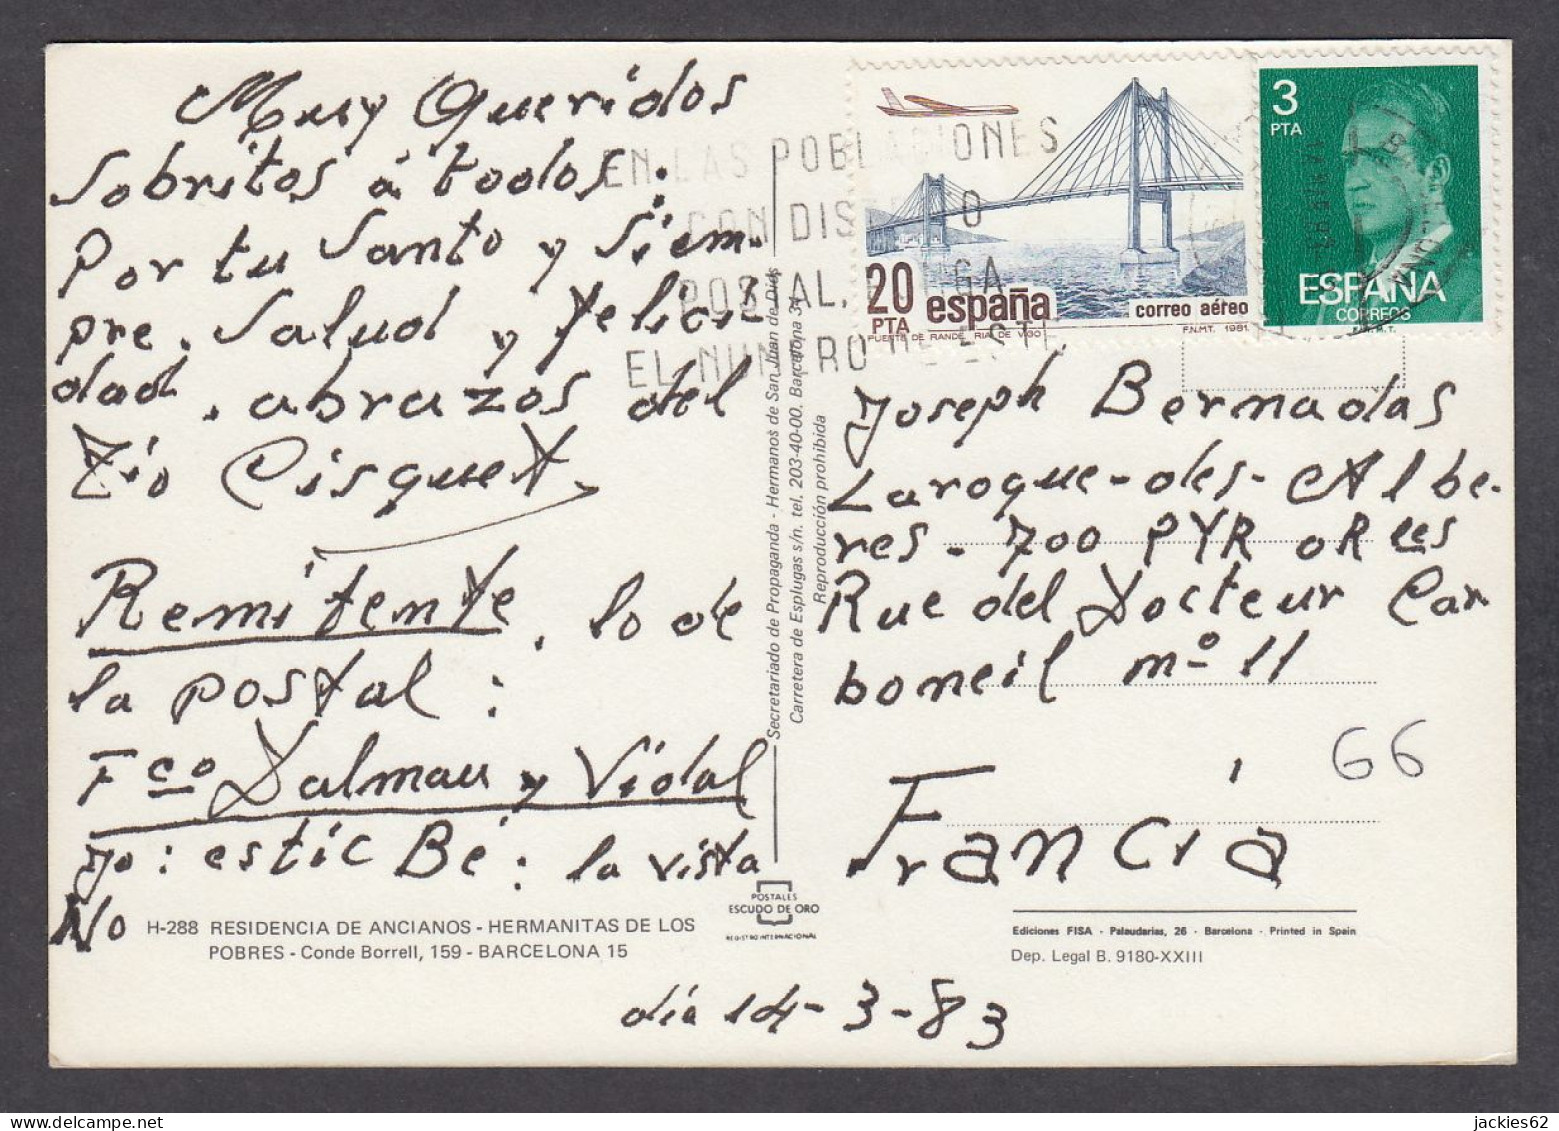 Muy Queridos
Sobritos á todos:
Por tu Santo y Siem-
pre. Salud y felici-
dad. abrazos del
Tio Cisquet
Remitente. lo de
la postal:
Fco Dalmau y Vidal
yo: estic Bé: la vista
No
H-288 RESIDENCIA DE ANCIANOS - HERMANITAS DE LOS
POBRES - Conde Borrell, 159 - BARCELONA 15
día 14-3-83
Secretariado de Propaganda - Hermanos de San Juan de Dios
Carretera de Esplugas s/n. tel. 203-40-00. Barcelona 34
Reproducción prohibida
POSTALES
ESCUDO DE ORO
REGISTRO INTERNACIONAL
EN LAS POBLACIONES
CON DISTRITO
POSTAL, PONGA
EL NUMERO DE ESTE
20
PTA
españa
correo aéreo
PUENTE DE RANDE. RIA DE VIGO
F.N.M.T. 1981.
3
PTA
ESPAÑA
CORREOS
Joseph Bernadas
Laroque-des-Albe-
res - 700 PYR ORLes
Rue del Docteur Car
boneil nº 11
66
Francia
Ediciones FISA - Palaudarias, 26 - Barcelona - Printed in Spain
Dep. Legal B. 9180-XXIII
jackies62
delcampe.net